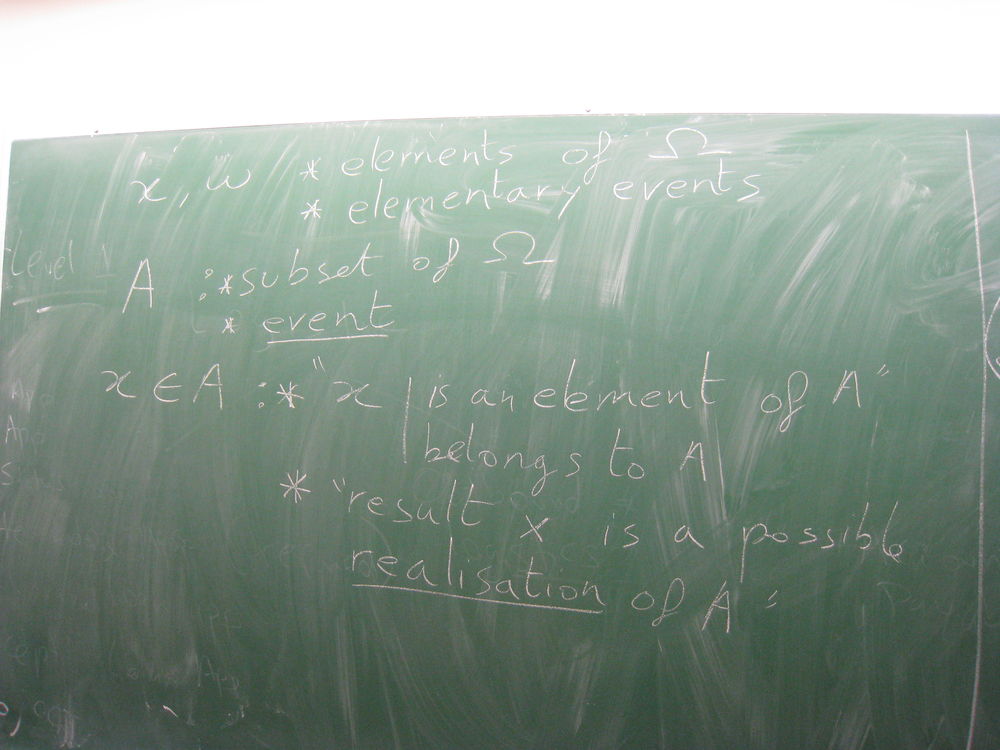 x, ω * elements of Ω
* elementary events
Level 1
A : * subset of Ω
* event
x ∈ A : * "x | is an element of A"
belongs to A
* "result x is a possible
realisation of A"